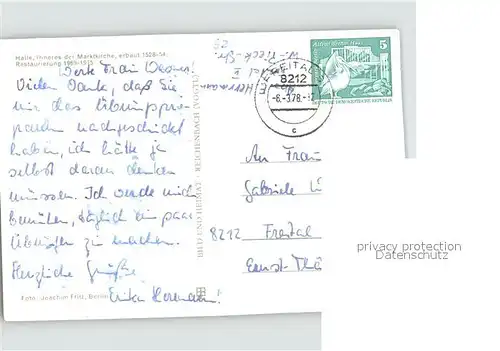 Halle, Inneres der Marktkirche, erbaut 1529-54.
Restaurierung 1968-1975
Werte Frau
Vielen Dank, daß Sie
mir das Übungspro-
gramm nachgeschickt
haben, ich hätte ja
selbst daran denken
müssen. Ich werde mich
bemühen, täglich ein paar
Übungen zu machen.
Herzliche Grüße
Erika Hermann!
Foto: Joachim Fritz, Berlin
BILD UND HEIMAT · REICHENBACH (VOGTL)
Hermann
FREITAL
8212
-6.-3.78.-
c
5
DEUTSCHE DEMOKRATISCHE REPUBLIK
An Frau
Gabriele
8212 Freital
Ernst-Thä
privacy protection
Datenschutz